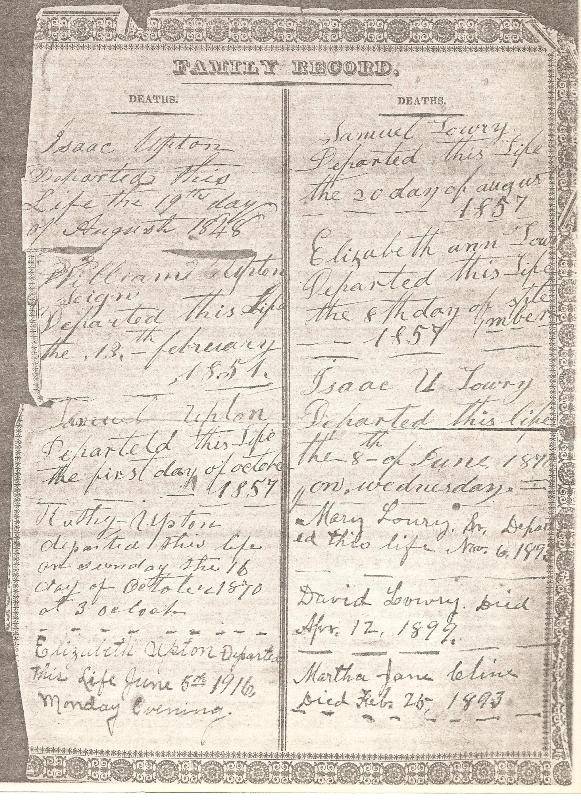 FAMILY RECORD.
DEATHS.
Isaac Upton
Departed this
Life the 19th day
of August 1848
William Upton
Seign
Departed this Life
the 13th february
1851.
Samuel Upton
Departeld this Life
the first day of octobe
1857
Kathy Upton
departed this life
on sunday the 16
day of October 1870
at 3 oclock
Elizabeth Upton Departe
This Life June 5th 1916,
Monday Evening.
DEATHS.
Samuel Lowry
Departed this Life
the 20 day of augus
1857
Elizabeth ann Low
Departed this Life
the 8th day of Septe
1857 mber
Isaac U Lowry
Departed this life
the 8th of June 187
on wednesday.
Mary Lowry, Sr, Depart
ed this life Nov. 6, 189
David Lowry. Died
Apr. 12, 1899.
Martha Jane Cline
Died Feb. 25, 1893